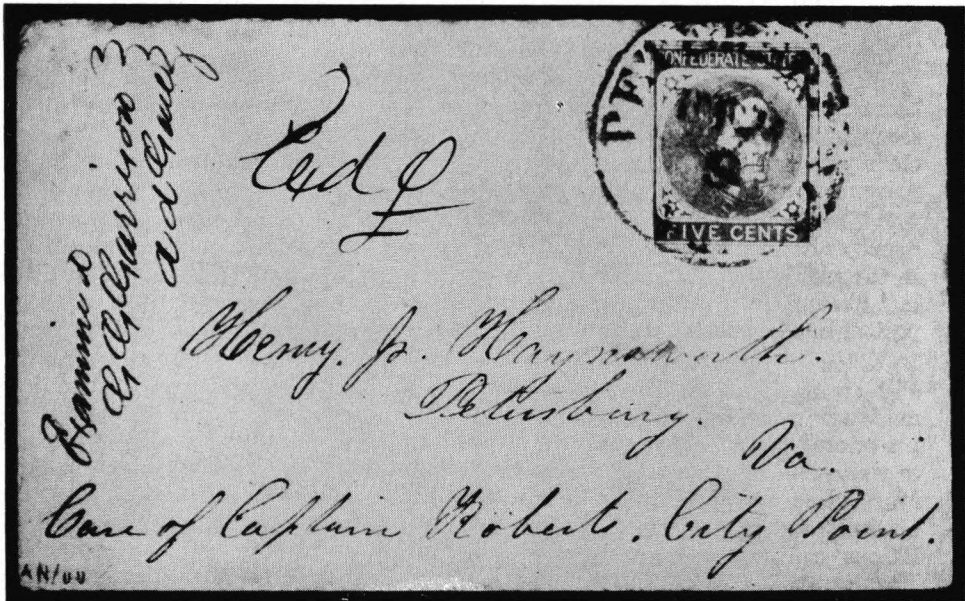 Examined
G G Garrison
Exd
CONFEDERATE STATES
FIVE CENTS
Henry. Jr. Haynsworth.
Petersburg.
Va.
Care of Captain Roberts. City Point.
AN/00